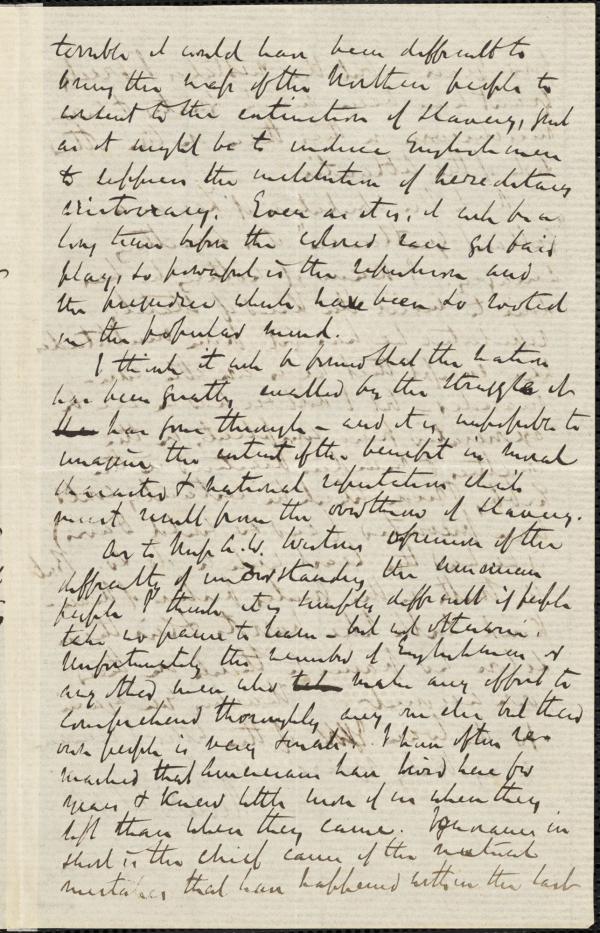 terrible it would have been difficult to
bring the mass of the Northern people to
consent to the extinction of slavery, just
as it might be to induce Englishmen
to suppress the institution of hereditary
aristocracy. Even as it is, it will be a
long time before the colored race get fair
play, so powerful is the repulsion and
the prejudice which have been so rooted
in the popular mind.
I think it will be found that the nation
has been greatly exalted by the struggle it
has gone through – and it is impossible to
imagine the extent of the benefit in moral
character & national reputation which
must result from the overthrow of slavery.
As to Miss A. W. Weston's opinion of the
difficulty of understanding the American
people I think it is simply difficult if people
take no pains to learn – but not otherwise.
Unfortunately the number of Englishmen or
any other men who make any effort to
comprehend thoroughly any one else but their
own people is very small. I have often re-
marked that Americans have lived here for
years & knew little more of us when they
left than when they came. Ignorance in
short is the chief cause of the mutual
mistakes that have happened within the last